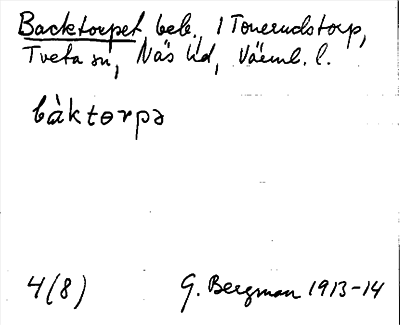 Backtorpet beb., 1 Tonerudstorp,
Tveta sn, Näs hd, Värml. l.
bàktorpə
4(8) G. Bergman 1913-14